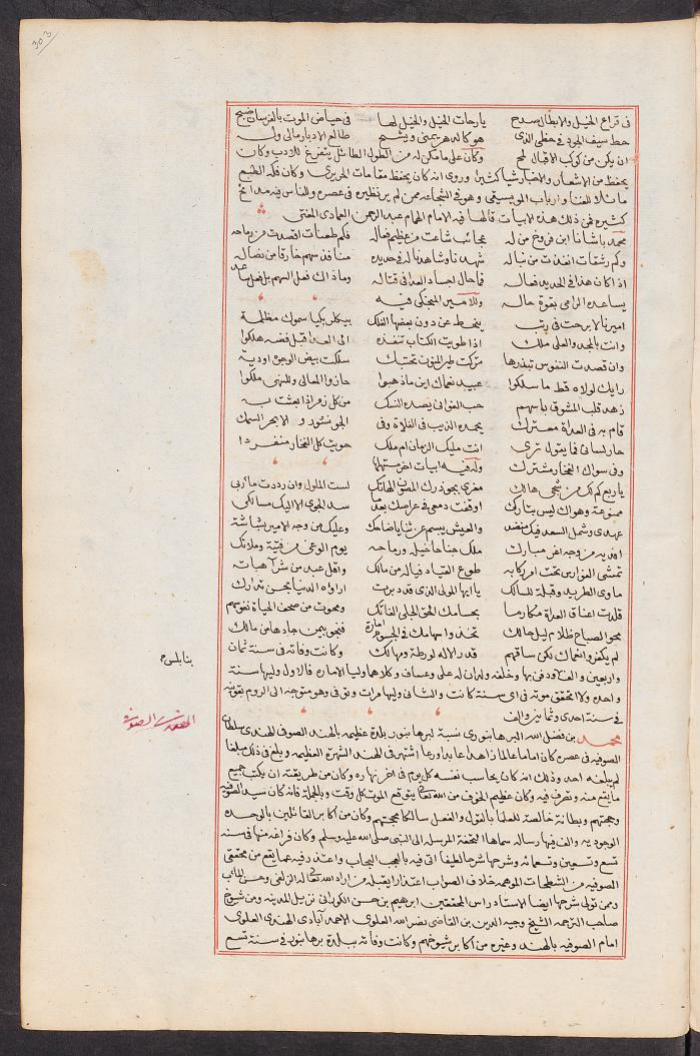 303
فى قراع الخيل والابطال سدح يارحات الخيل والخيل لها فى حياض الموت بالفرسان ضبح
حط سيف الجود فى حظى الذى هو كالدهر يمنى ويشح طالع الادبار مالى وله
ان يكن من كوكب الاقبال لمح وكان على ما مكن له من الطول الطائل يتفرغ للادب وكان
يحفظ من الاشعار والاخبار شيأ كثيرا وروى انه كان يحفظ مقامات الحريرى وكان فكه الطبع
مائلا للغنا وارباب الموسيقى وهو فى الشجاعة ممن لم ير نظيره فى عصره وللناس فيه مدائح
كثيره فمن ذلك هذه الابيات قالها فيه الامام الهمام عبد الرحمن العمادى المفتى
محمد باشانا ابن فروخ من له عجائب شاعت من عظيم فعاله فكم طعنات اقصدت من رماحه
وكم رشقات انفذت من نباله شهدنا وشاهدنا له فى حديده منافذ سهم خارقا من نصاله
اذا كان هذا فى الحديد فعاله فاحال اجساد العدا فى قتاله وما ذاك فعل السهم بل فعل ساعد
يساعده الرامى بقوة حاله وللامير المنجكى فيه
اميرنا لا برحت فى رتب ينحط عن دون بعضها الفلك بيكلربكيا سموك مظلمة
وانت بالمجد والعلى ملك اذا طويت الكتاب تنفذه الى العدا قبل فضه هلكوا
وان قصدت النفوس تبغدها متركت طير المنون تحتبك سلكت بيض الوجوه اودية
رايك لولاه قط ما سلكوا عبيد نعماك اين ما ذهبوا حازوا المعالى وللنهى ملكوا
زهد قلب المشوق باسهم حب الغوانى يصده النسك من كل زمراذا ابعثت به
قام به فى العداة معترك يحمده الذيب فى الفلاة وفى الجو نسور والابحر السمك
حار لسانى فما يقول ترى انت مليك الزمان ام ملك حويت كل الفخار منفردا
وفى سواك الفخار مشترك وله فيه ابيات اخر مستهلها
يا ربع كم لك من شجى هالك مغرى بجوذرك المصون الهاتك لست الملول وان رددت مآربى
ممنوعة وهواك ليس بتارك اوقفت دمعى فى عراصك بعد ما سد الجوى الا اليك مسالكى
عهدى وشمل السعد فيك منضد والعيش يبسم عن ثنايا ضاحك وعليك من وجه الامير بشاشة
افديه من وجه اغر مبارك ملك جناحا خيله ورماحه يوم الوغى من فتية وملائك
تمشى الفوارس تحت امر ركابه طوع القياد فياله من مالك واقل عبد من سراة هباته
ماوى الطريد وقبلة للسالك يا ايها المولى الذى قد برت اراؤه الدنيا بحسن تدارك
قلدت اعناق العداة مكارما بحسامك الحق الجلى الفاتك ومحوت من صحف الحياة نفوسهم
محو الصباح ظلام ليل حالك تخذوا سهامك فى الجسوم امارة فنجو بيمن جادها من مالك
لم يكفروا نعماك لكن ساقهم قدر الاله لورطة ومهالك وكانت وفاته فى سنة ثمان
واربعين والف ودفن بها وخلفه ولدان له على وعساف وكلاهما وليا الاماره فالاول وليها سنة
بنابلس
واحده ولا اتحقق موته فى اى سنة كانت والثانى وليها مرات وتوفى وهو متوجه الى الروم بقونيه
فى سنة احدى وثمانين والف
محمد بن فضل الله البرهانبورى نسبة لبرهانبور بلدة عظيمه بالهند الصوفى الهندى سلطان
الصوفيه فى عصره كان اماما عالما زاهدا عابدا ورعا اشتهر فى الهند الشهرة العظيمه وبلغ فى ذلك مبلغا
لم يبلغه احد وذلك انه كان يحاسب نفسه كل يوم فى اخر نهاره وكان من طريقته ان يكتب جميع
ما يقع منه وتعرف فيه وكان عظيم الخوف من الله تعالى يتوقع الموت كل وقت وبالجملة فانه كان سيد الصوفية
وحجتهم وبطانة خالصة للعلما بالقول والفعل سالكا محجتهم وكان من اكابر القائلين بالوحده
الوجوديه والف فيها رساله سماها التحفة المرسله الى النبى صلى الله عليه وسلم وكان فراغه منها فى سنه
تسع وتسعين وتسعمائه وشرحها شرحا لطيفا اتى فيه بالعجب العجاب واعتذر فيه عما يقع من محققى
الصوفيه من الشطحات الموهمه خلاف الصواب اعتذارا يقبله من اراد الله تعالى له الزلفى وحسن المآب
وممن تولى شرحها ايضا الاستاد راس المحققين ابرهيم بن حسن الكورانى نزيل المدينه ومن شيوخ
صاحب الترجمه الشيخ وجيه الدين بن القاضى نصر الله العلوى الاحمد آبادى الهندى العلوى
امام الصوفيه بالهند وغيره من اكابر شيوخهم وكانت وفاته ببلدة برهانبور فى سنة تسع